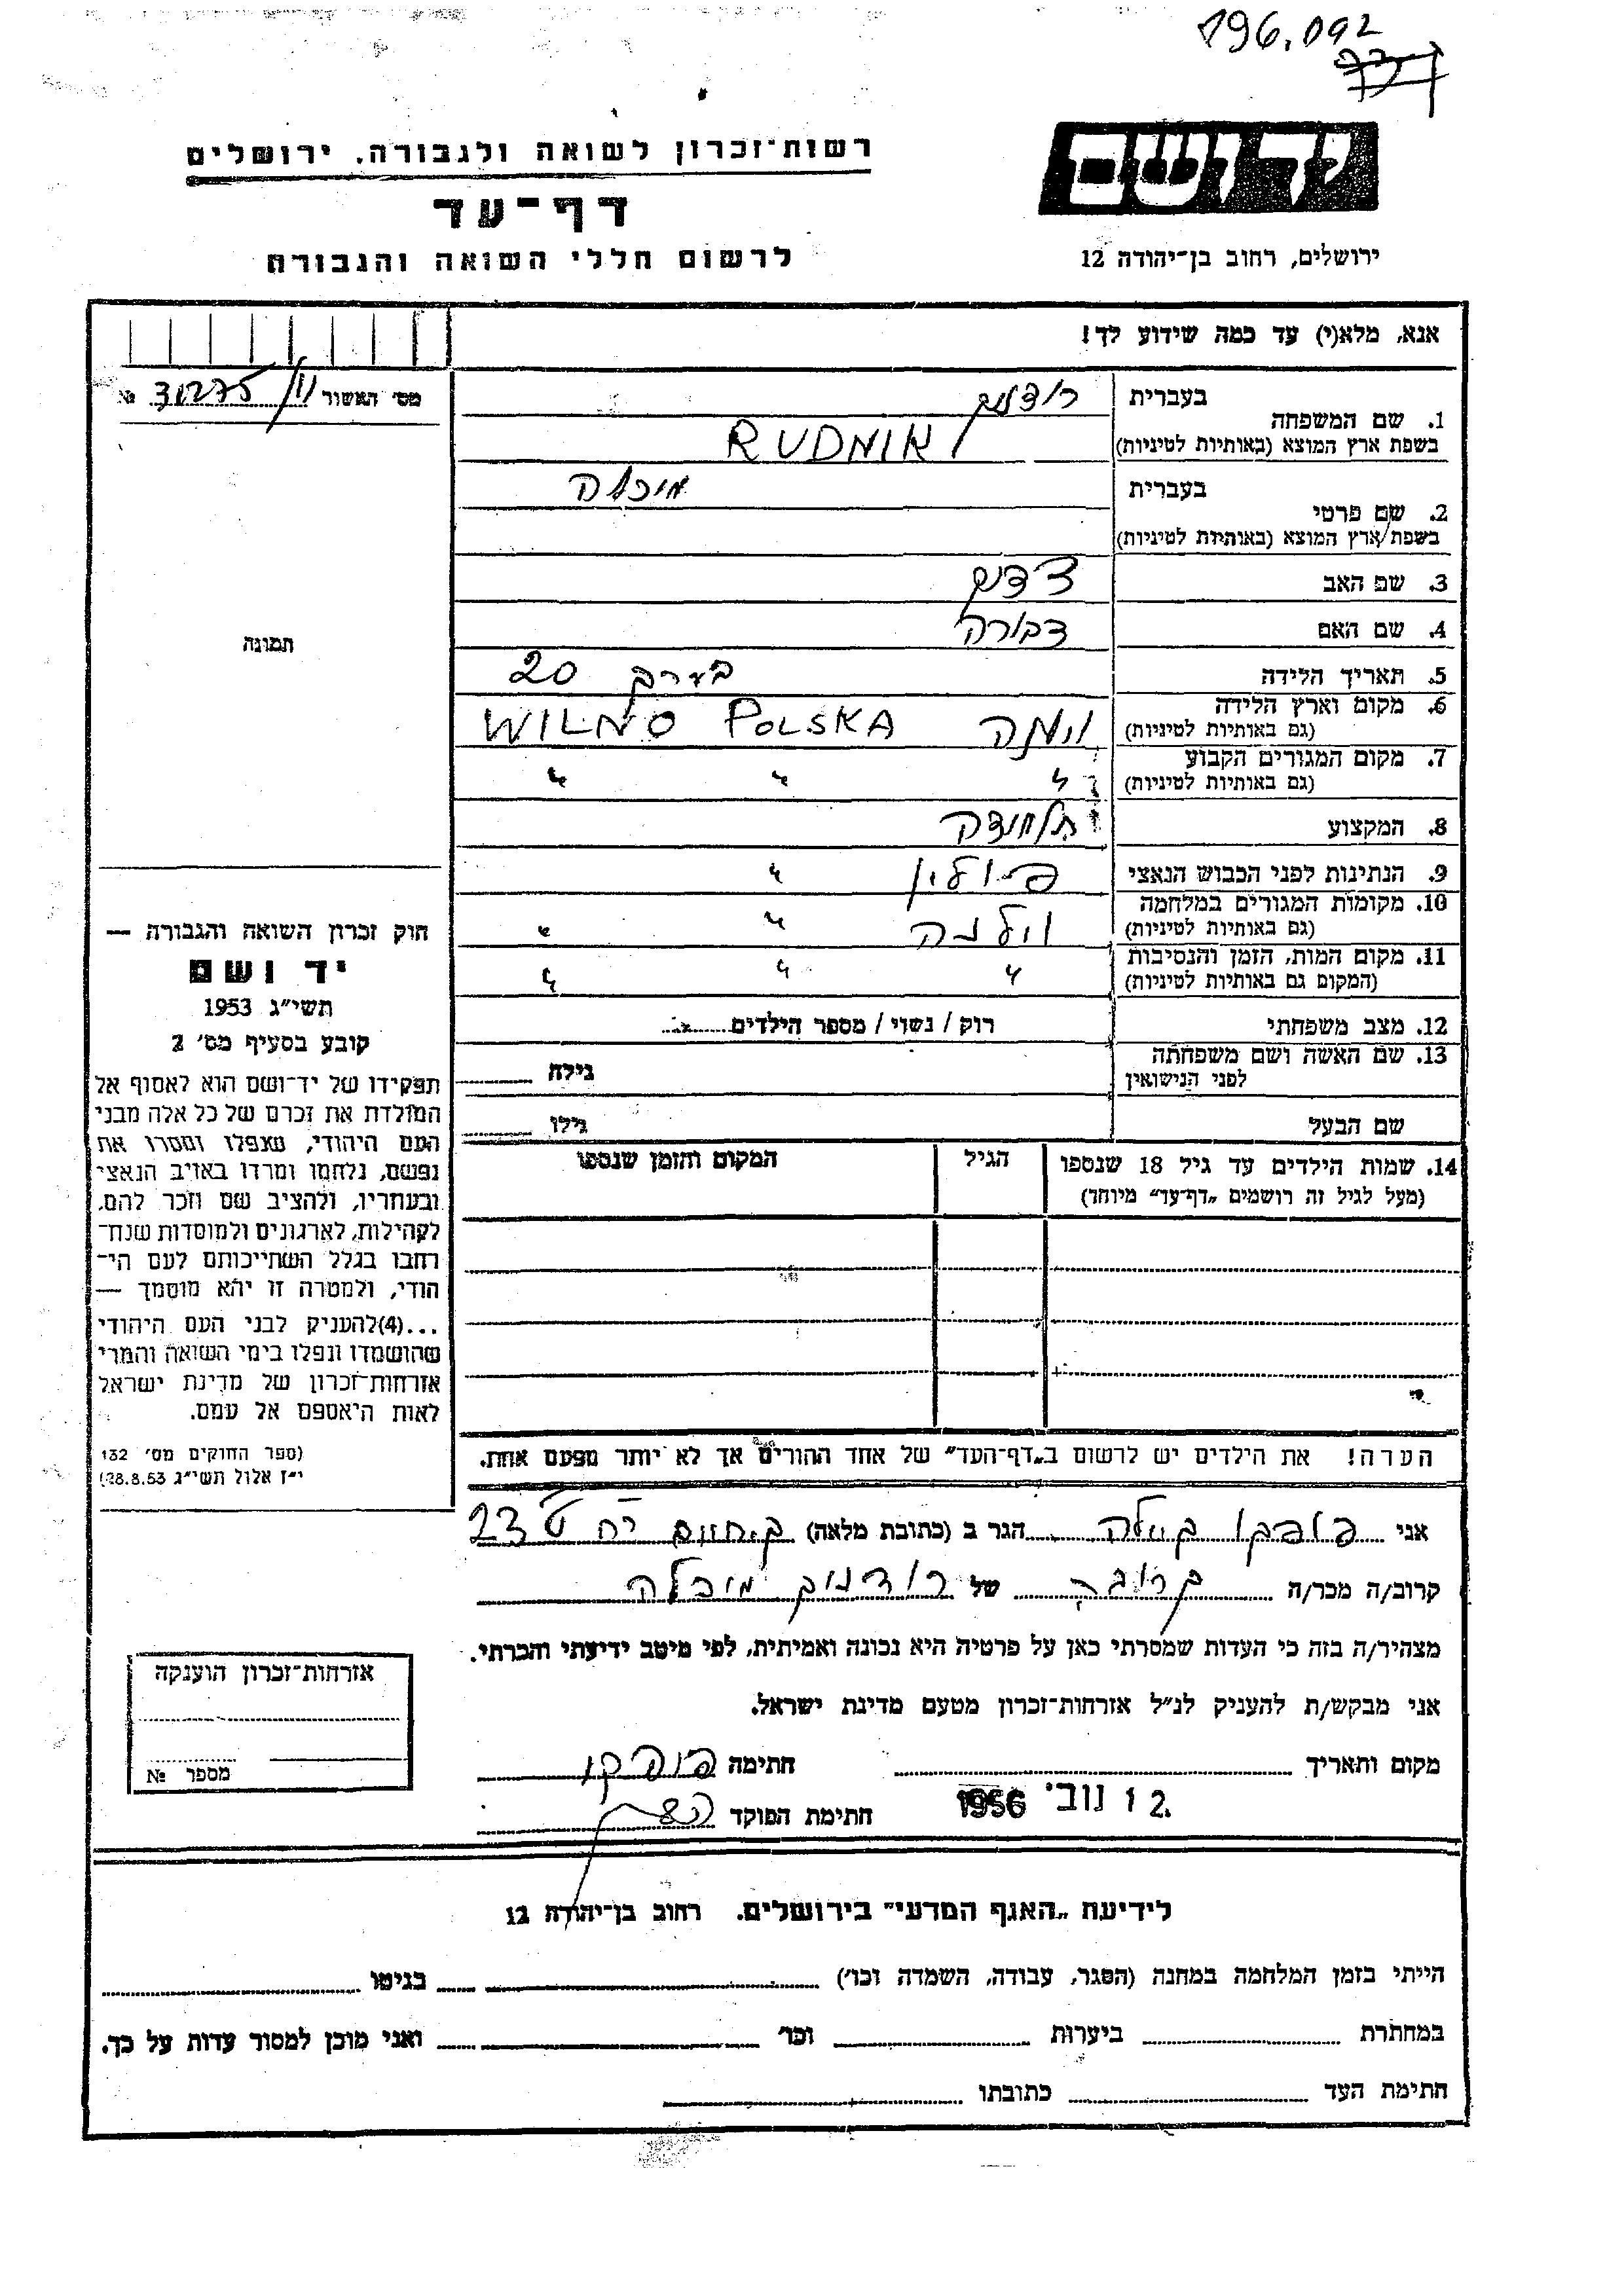 196.092
רשות־זכרון לשואה ולגבורה. ירושלים
יד ושם
דף־עד
לרשום חללי השואה והגבורה
ירושלים, רחוב בן־יהודה 12
אנא, מלא(י) עד כמה שידוע לך!
מס׳ האשור № 31275
1. שם המשפחה
בעברית רודניק
בשפת ארץ המוצא (באותיות לטיניות) RUDNIK
2. שם פרטי
בעברית מיכלה
בשפת ארץ המוצא (באותיות לטיניות)
3. שם האב
4. שם האם דבורה
5. תאריך הלידה בערך 20
6. מקום וארץ הלידה (גם באותיות לטיניות) וילנה WILNO POLSKA
7. מקום המגורים הקבוע (גם באותיות לטיניות) " " "
8. המקצוע תלמידה
9. הנתינות לפני הכבוש הנאצי פולין "
10. מקומות המגורים במלחמה (גם באותיות לטיניות) וילנה " "
11. מקום המות, הזמן והנסיבות (המקום גם באותיות לטיניות) " " "
12. מצב משפחתי רוק / נשוי / מספר הילדים
13. שם האשה ושם משפחתה לפני הנישואין גילה
שם הבעל גילו
14. שמות הילדים עד גיל 18 שנספו
(מעל לגיל זה רושמים „דף־עד״ מיוחד)
הגיל
המקום והזמן שנספו
תמונה
חוק זכרון השואה והגבורה —
יד ושם
תשי״ג 1953
קובע בסעיף מס׳ 2
תפקידו של יד־ושם הוא לאסוף אל
המולדת את זכרם של כל אלה מבני
העם היהודי, שנפלו ומסרו את
נפשם, נלחמו ומרדו באויב הנאצי
ובעוזריו, ולהציב שם וזכר להם,
לקהילות, לארגונים ולמוסדות שנח־
רבו בגלל השתייכותם לעם הי־
הודי, ולמטרה זו יהא מוסמך —
...(4)להעניק לבני העם היהודי
שהושמדו ונפלו בימי השואה והמרי
אזרחות־זכרון של מדינת ישראל
לאות היאספם אל עמם.
(ספר החוקים מס׳ 132
י״ז אלול תשי״ג 28.8.53)
הערה! את הילדים יש לרשום ב„דף־העד״ של אחד ההורים אך לא יותר מפעם אחת.
אני הגר ב (כתובת מלאה) 23
קרוב/ה מכר/ה קרובה של רודניק מיכלה
מצהיר/ה בזה כי העדות שמסרתי כאן על פרטיה היא נכונה ואמיתית, לפי מיטב ידיעתי והכרתי.
אני מבקש/ת להעניק לנ״ל אזרחות־זכרון מטעם מדינת ישראל.
אזרחות־זכרון הוענקה
מספר №
מקום ותאריך חתימה
12 נוב׳ 1956 חתימת הפוקד
לידיעת „האגף המדעי״ בירושלים. רחוב בן־יהודה 12
הייתי בזמן המלחמה במחנה (הסגר, עבודה, השמדה וכו׳) בגיטו
במחתרת ביערות וכו׳ ואני מוכן למסור עדות על כך.
חתימת העד כתובתו